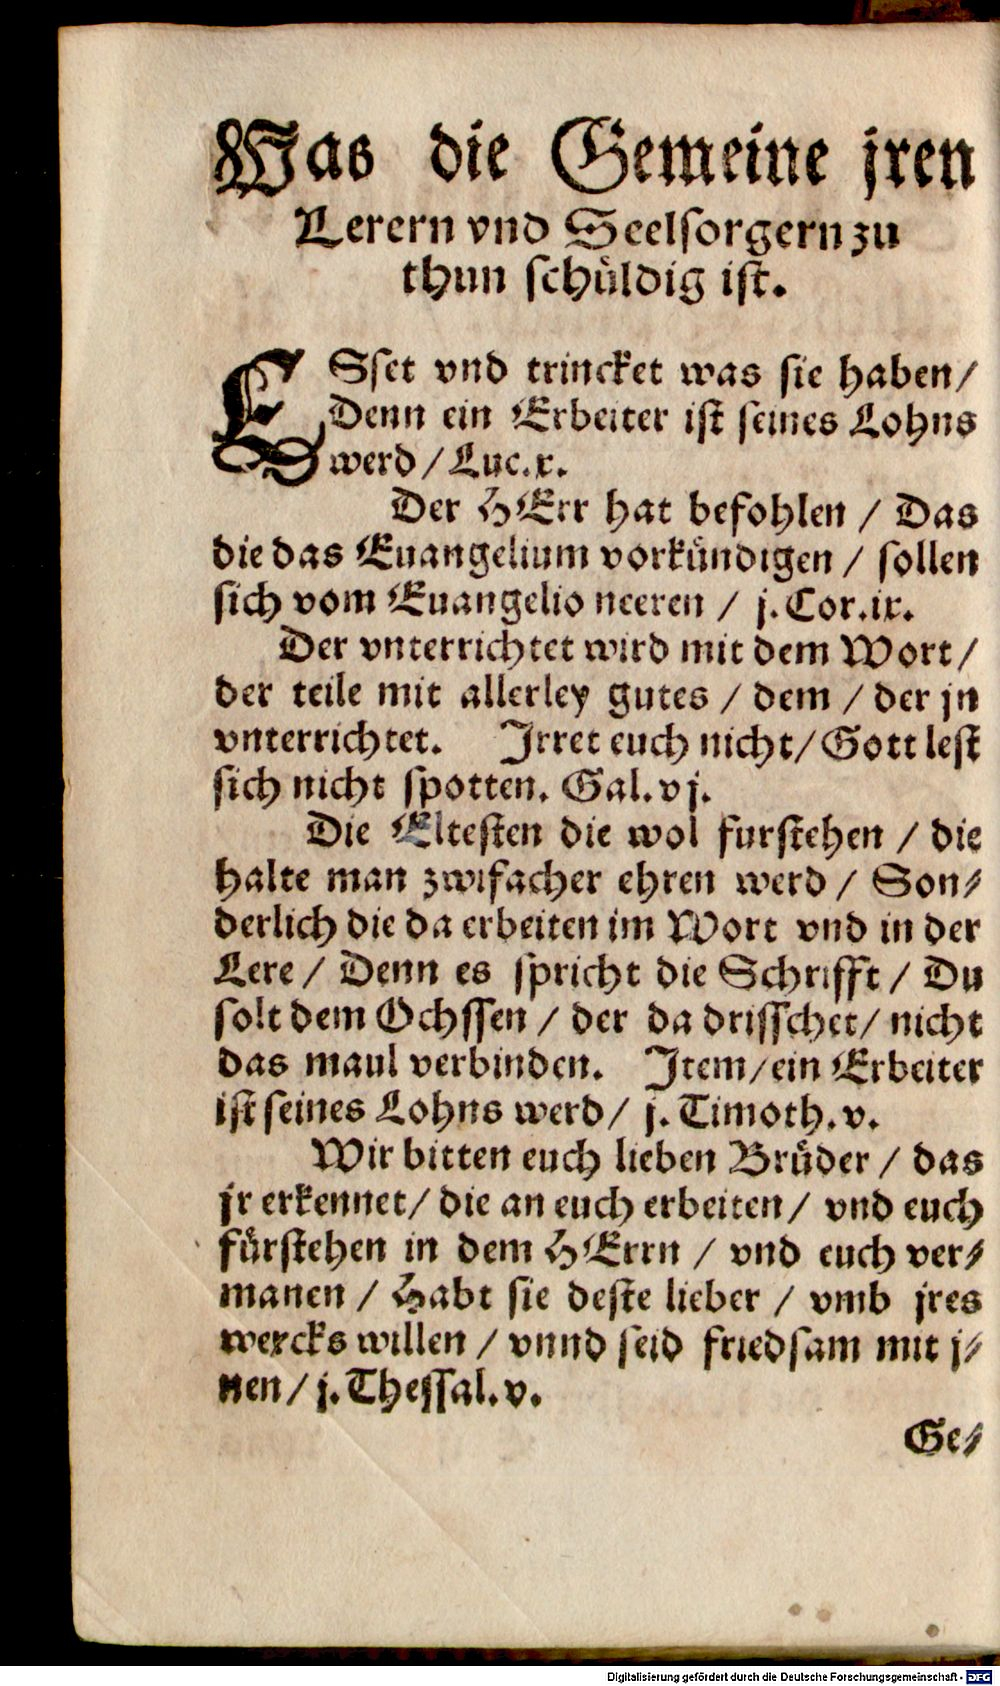 Was die Gemeine jren
Lerern vnd Seelsorgern zu
thun schüldig ist.
ESset vnd trincket was sie haben/
Denn ein Erbeiter ist seines Lohns
werd / Luc.x.
Der HErr hat befohlen / Das
die das Euangelium vorkündigen / sollen
sich vom Euangelio neeren / j. Cor.ix.
Der vnterrichtet wird mit dem Wort /
der teile mit allerley gutes / dem / der jn
vnterrichtet. Jrret euch nicht/ Gott lest
sich nicht spotten. Gal. vj.
Die Eltesten die wol furstehen / die
halte man zwifacher ehren werd / Son⸗
derlich die da erbeiten im Wort vnd in der
Lere / Denn es spricht die Schrifft / Du
solt dem Ochssen / der da drisschet/ nicht
das maul verbinden. Jtem/ ein Erbeiter
ist seines Lohns werd/ j. Timoth. v.
Wir bitten euch lieben Brüder / das
jr erkennet/ die an euch erbeiten / vnd euch
fürstehen in dem HErrn / vnd euch ver⸗
manen / Habt sie deste lieber / vmb jres
wercks willen / vnnd seid friedsam mit j⸗
nen / j. Thessal. v.
Ge⸗
Digitalisierung gefördert durch die Deutsche Forschungsgemeinschaft - DFG